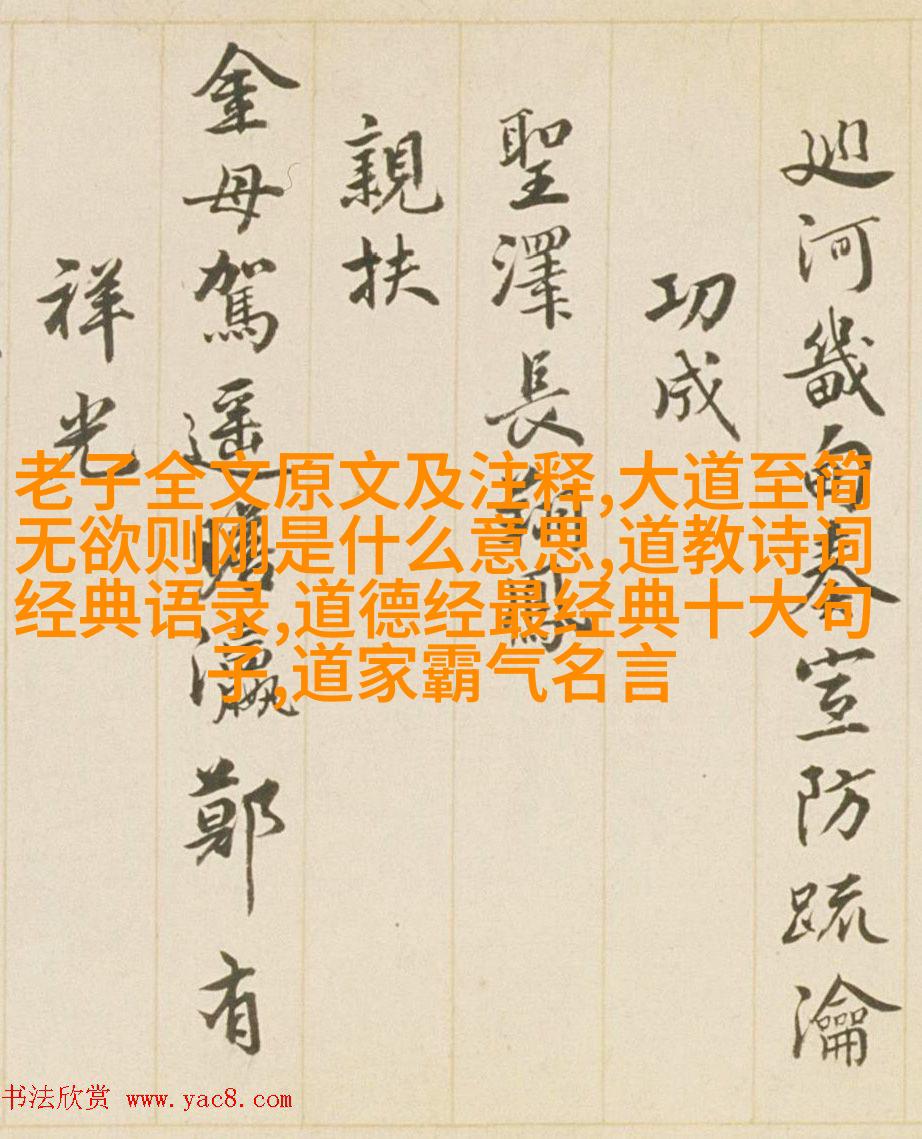 廵河畿甸奏宣防疏瀹
功成
聖澤長
親扶
金母駕遥瞻瀛鄭有
祥光
老子全文原文及注释,大道至简
无欲则刚是什么意思,道教诗词
经典语录,道德经最经典十大句
子,道家霸气名言
书法欣赏 www.yac8.com